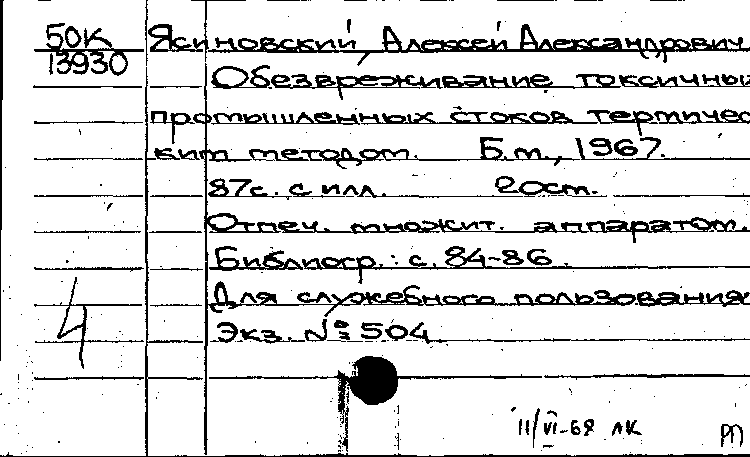 50К Ясиновский, Алексей Александрович
13930
Обезвреживание токсичны
промышленных стоков термичес
ким методом. Б.м., 1967.
87с. с илл. 20см.
Отпеч. множит. аппаратом.
Библиогр.: с. 84-86.
Для служебного пользования
Экз. № 504
4
11/VI-68 ЛК РП